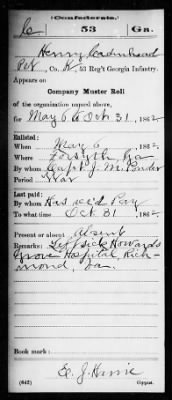 (Confederate.)
C 53 Ga.
Henry Cadenhead
Pvt, Co. K, 53 Reg't Georgia Infantry.
Appears on
Company Muster Roll
of the organization named above,
for May 6 to Oct 31, 1862.
Enlisted:
When May 6, 1862.
Where Forsyth, Ga
By whom Capt J. M. Ponder
Period War
Last paid:
By whom Has rec'd Pay
To what time Oct 31, 186 .
Present or absent Absent
Remarks: Left sick Howards
Grove Hospital, Rich-
mond, Va.
Book mark:
(642) Copyist.